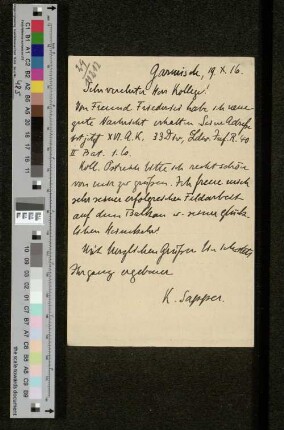 Garmisch, 19.X.16.
Sehr verehrter Herr Kollege!
Von Freund Friederici habe ich neue
gute Nachricht erhalten. Seine Adresse
ist jetzt XVI. A.K. 33. Div., Ldw. Inf. R. 40
II Bat.
Koll. bitte ich recht schön
von mir zu grüßen. Ich freue mich
sehr seiner erfolgreichen Feldarbeit
auf dem Balkan u. seiner glück-
lichen Heimkehr!
Mit herzlichen Grüßen
Ihr ganz ergebener
K. Sapper.